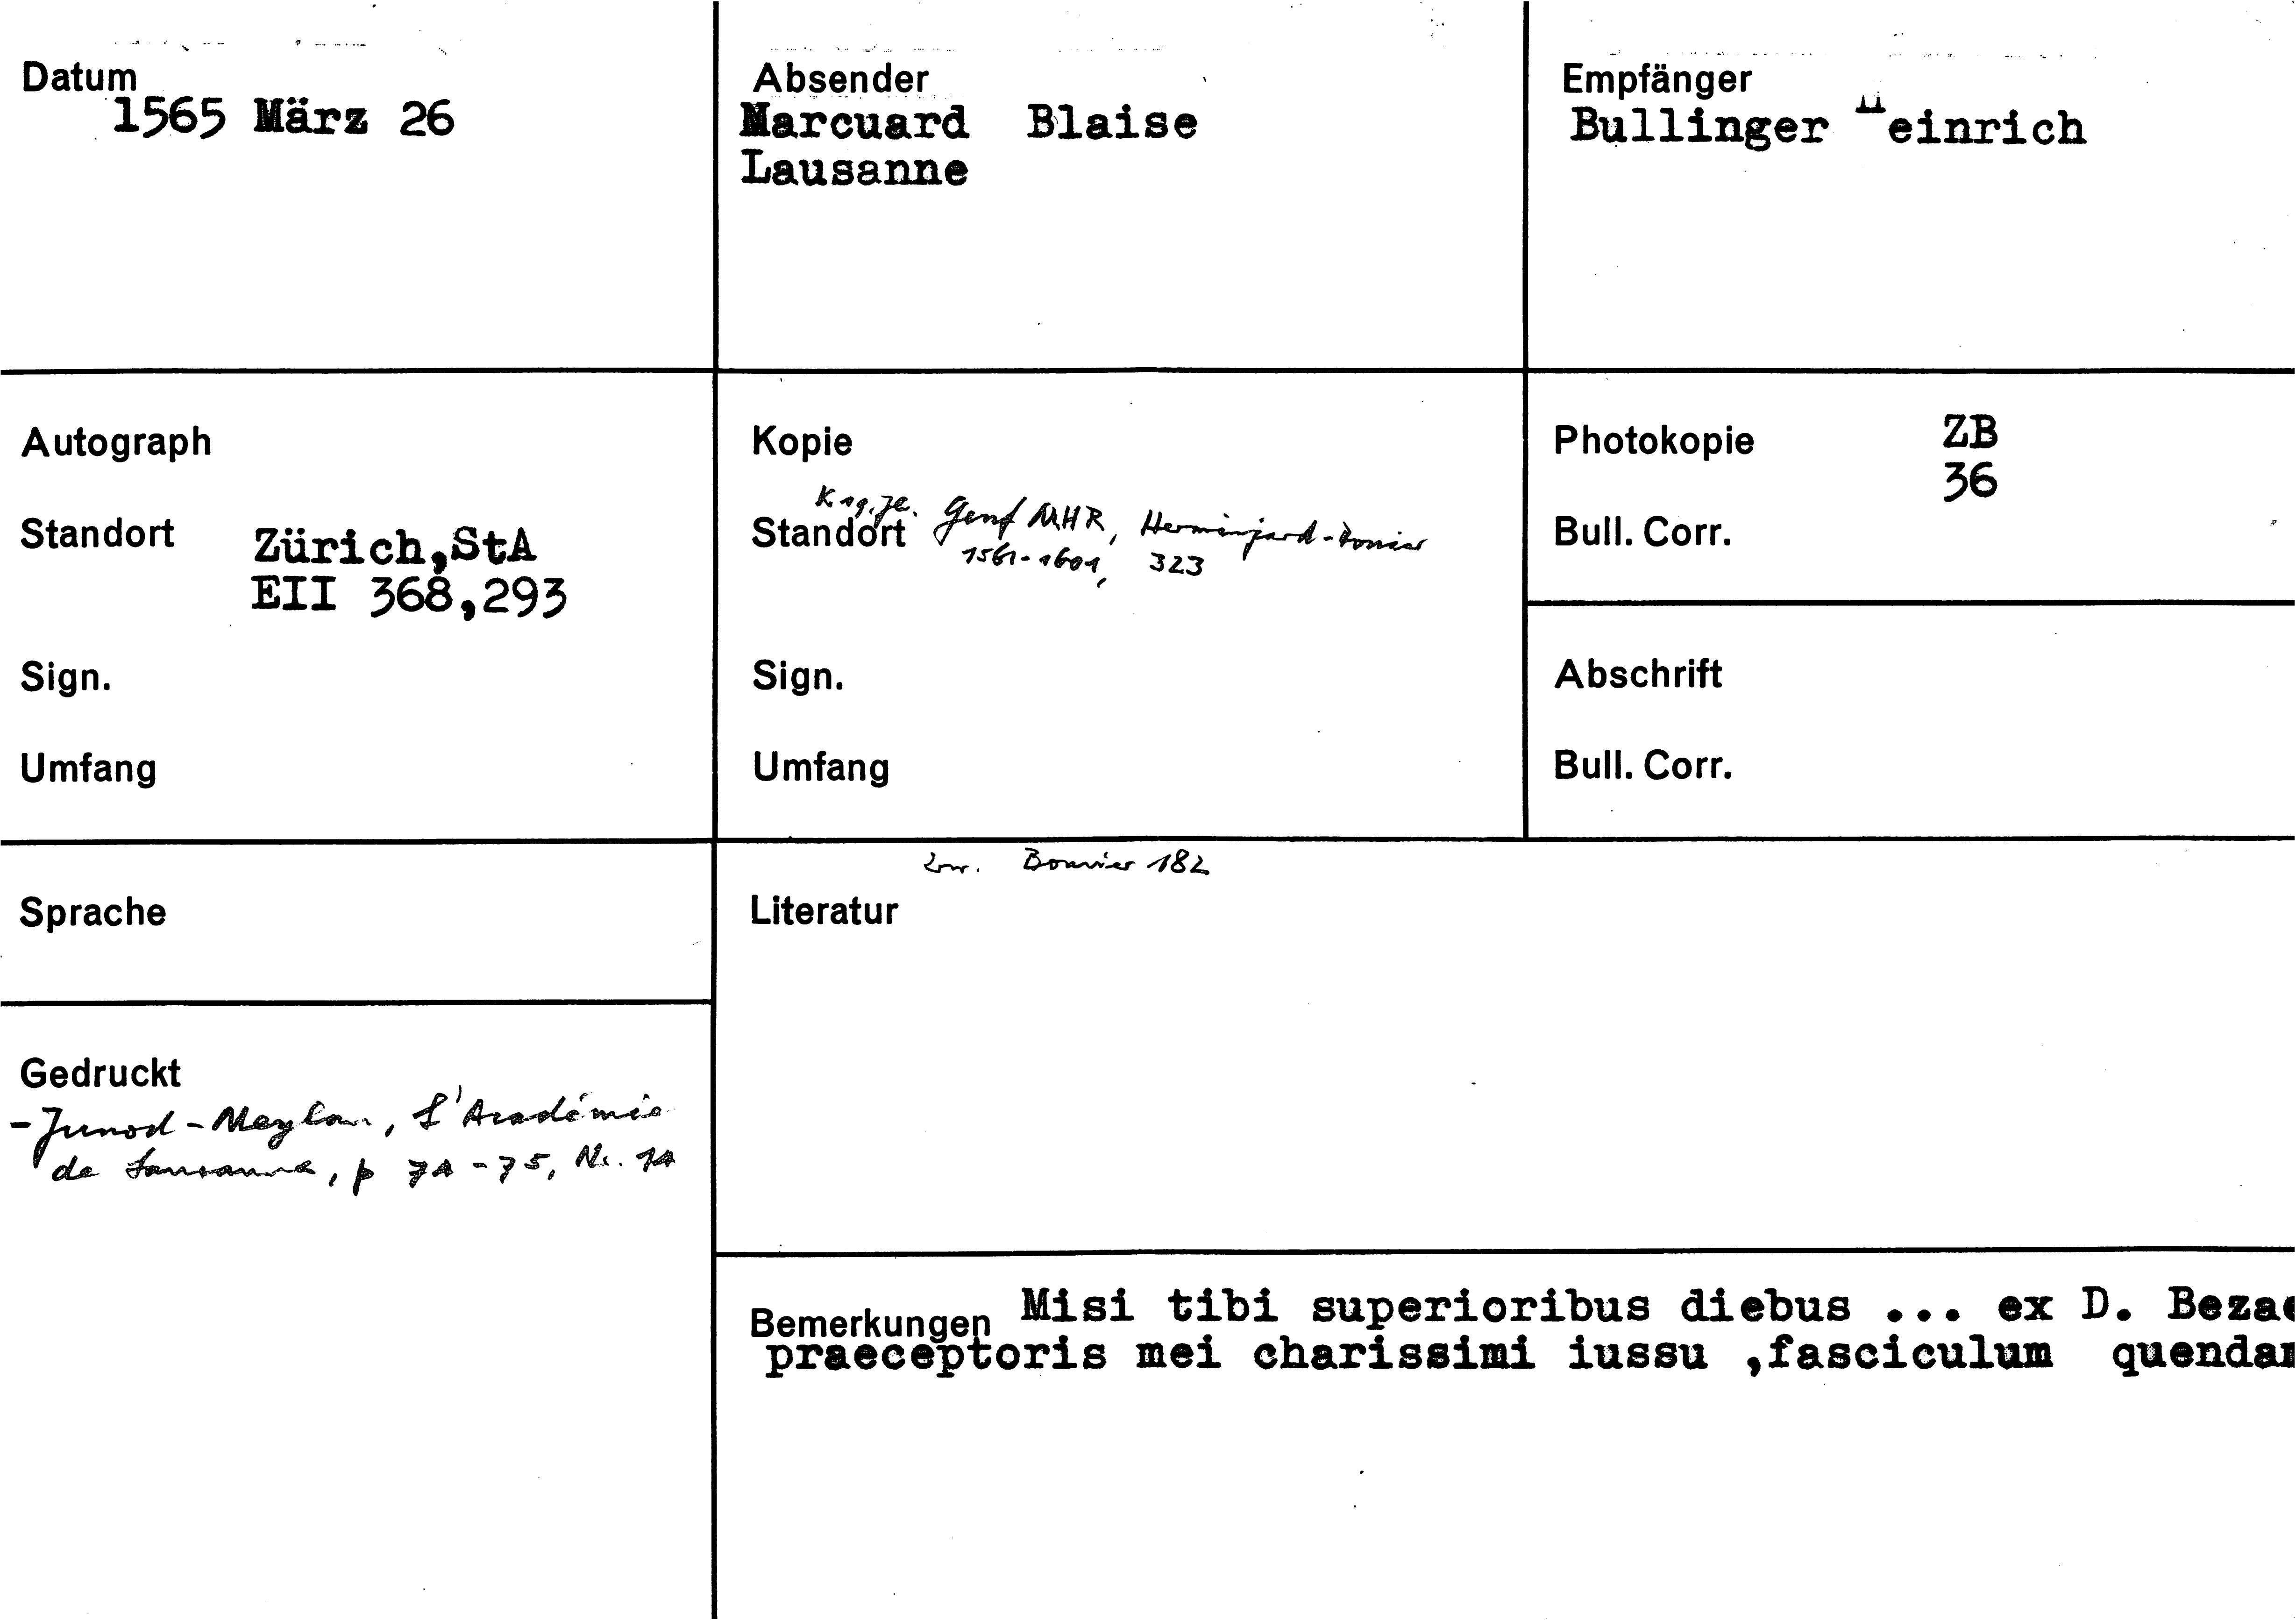 Datum
1565 März 26
Absender
Marcuard Blaise
Lausanne
Empfänger
Bullinger Heinrich
Autograph
Standort Zürich,StA
EII 368,293
Sign.
Umfang
Kopie
Standort Genf MHR, Herminjard-
1561-1601, 323
Sign.
Umfang
Photokopie ZB
36
Bull. Corr.
Abschrift
Bull. Corr.
Sprache
Bouvier 182
Literatur
Gedruckt
- Junod-Meylan, L'Académie
de Lausanne, p 74-75, Nr. 14
Bemerkungen Misi tibi superioribus diebus ... ex D. Bezae
praeceptoris mei charissimi iussu ,fasciculum quendam